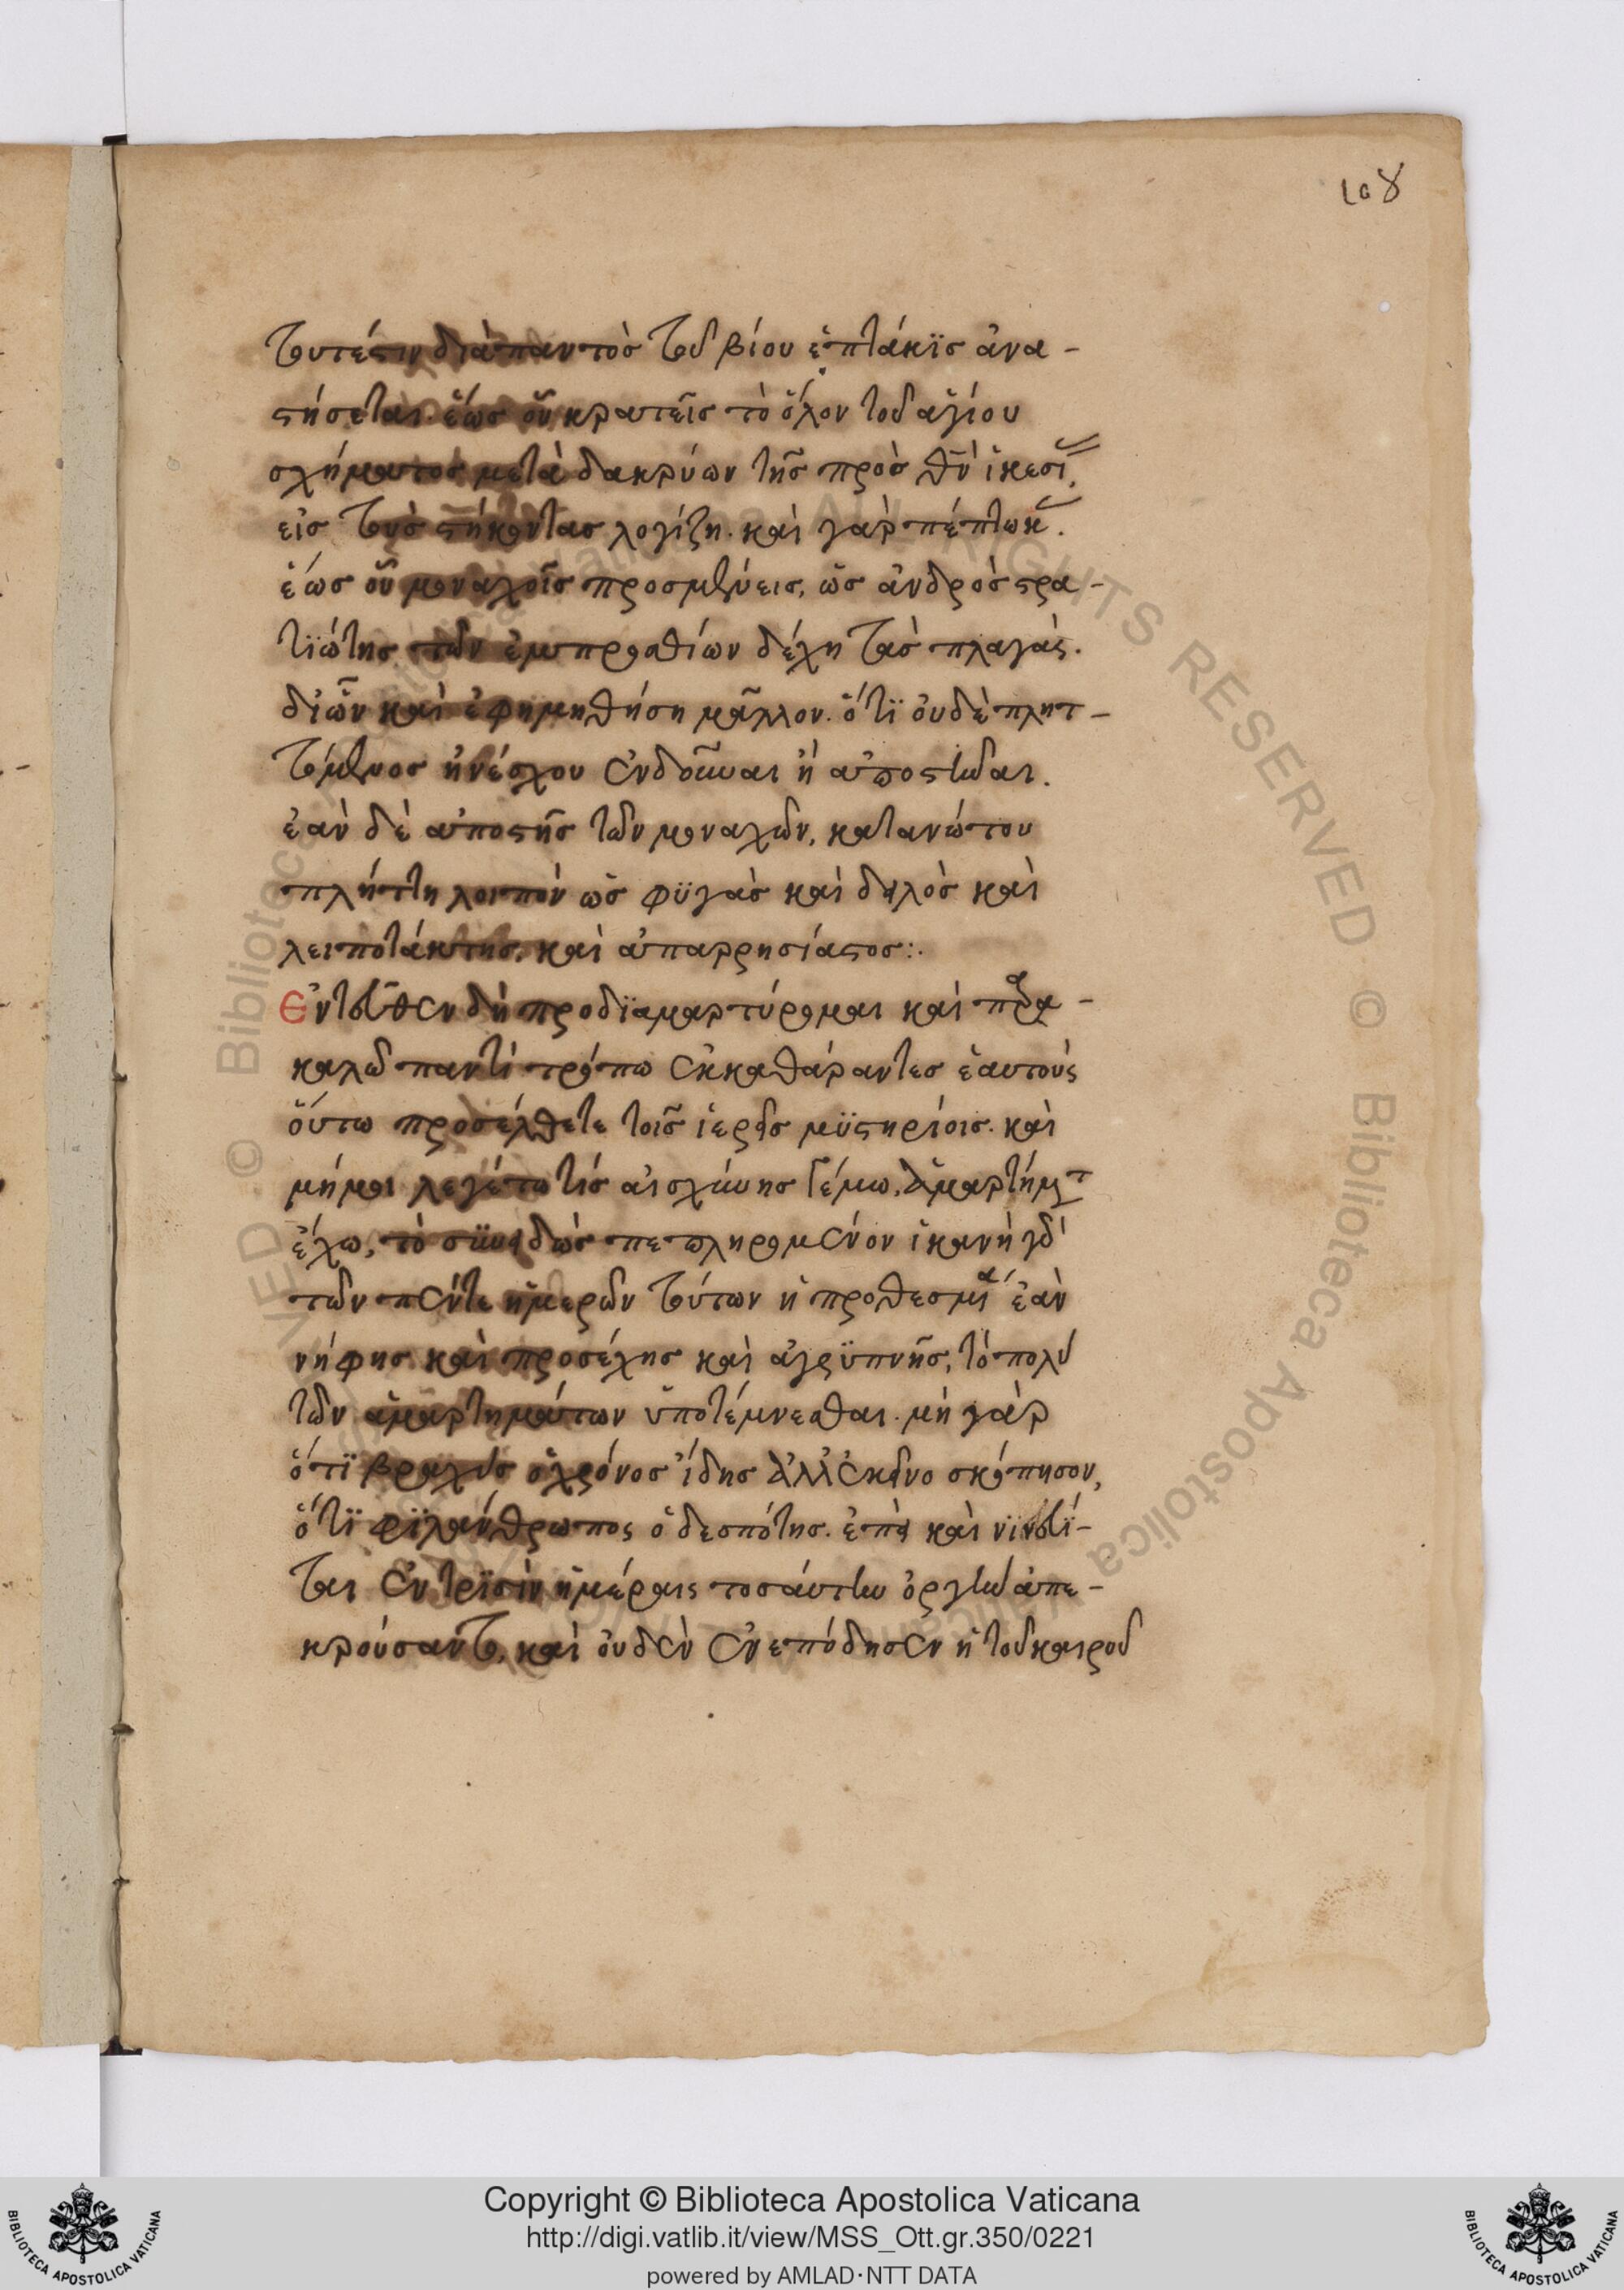 108
τουτέστιν διὰ παντὸς τοῦ βίου ἑπτάκϊς ἀνα-
στήσεται. ἕως οὖν κρατεῖς τὸ ὅλον τοῦ ἁγίου
σχήματος μετὰ δακρύων τῆς πρὸς θν̅ ἱκεσί
εἰς τοὺς στήκοντας λογίζη. καὶ γὰρ πέπτωκ.
ἕως οὖν μοναχοῖς προσμένεις, ὡς ἀνδρὸς στρα-
τϊώτης τῶν ἐμπροσθίων δέχη τὰς πλαγάς.
δι ὧν καὶ ἐφημηθήση μᾶλλον. ὅτϊ οὐδὲ πλητ-
τόμενος ἠνέσχου ἐνδοῦναι ἢ ἀποστῆναι.
ἐὰν δὲ ἀποστῆς τῶν μοναχῶν, κατανώτου
πλήττη λοιπὸν ὡς φϋγὰς καὶ δειλὸς καὶ
λειποτάκτης. καὶ ἀπαρρησίαστος:.
Ἐντεῦθεν δὴ προδϊαμαρτύρομαι καὶ παρα-
καλῶ παντὶ τρόπω ἐκκαθάραντες ἑαυτοὺς
οὕτω προσέλθετε τοῖς ἱεροῖς μϋστηρίοις. καὶ
μή μοι λεγέτω τίς αἰσχύνης γέμω, ἁμαρτήματ
ἔχω, τὸ συνειδὼς πεπληρομένον ἱκανὴ γὰρ
τῶν πέντε ἡμερῶν τούτων ἡ προθεσμία ἐὰν
νήφης καὶ προσέχης καὶ ἀγρϋπνῆς, τὸ πολὺ
τῶν ἁμαρτημάτων ὑποτέμνεσθαι. μὴ γὰρ
ὅτϊ βραχὺς ὁ χρόνος ἴδης ἀλλ ἐκεῖνο σκόπησον,
ὅτϊ φϊλάνθρωπος ὁ δεσπότης. ἐπεὶ καὶ νϊνευΐ-
ται ἐν τρϊσὶν ἡμέραις τοσαύτην ὀργὴν ἀπε-
κρούσαντο, καὶ οὐδὲν ἐνεπόδησεν ἡ τοῦ καιροῦ
Copyright © Biblioteca Apostolica Vaticana
http://digi.vatlib.it/view/MSS_Ott.gr.350/0221
powered by AMLAD·NTT DATA